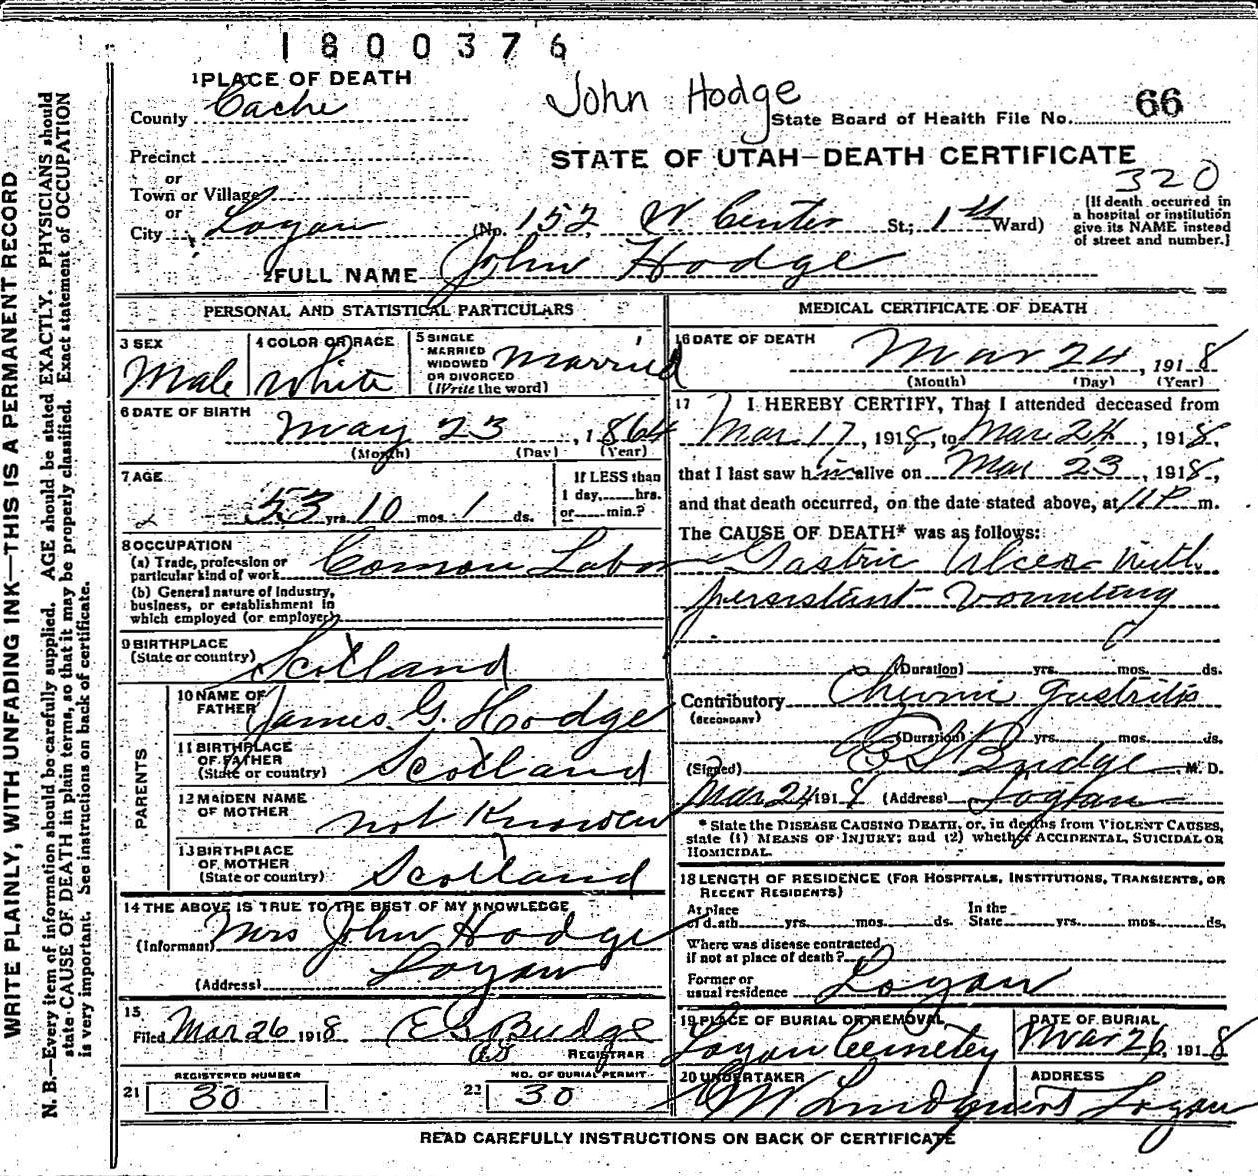 1800376
John Hodge
1 PLACE OF DEATH
County Cache
State Board of Health File No. 66
Precinct
STATE OF UTAH—DEATH CERTIFICATE
or
Town or Village
320
or
City Logan (No. 152 W Center St; 1st Ward)
[If death occurred in
a hospital or institution
give its NAME instead
of street and number.]
2 FULL NAME John Hodge
PERSONAL AND STATISTICAL PARTICULARS
3 SEX
Male
4 COLOR OR RACE
White
5 SINGLE
MARRIED
WIDOWED
OR DIVORCED
(Write the word)
Married
6 DATE OF BIRTH
May 23, 1864
(Month) (Day) (Year)
7 AGE
53 yrs. 10 mos. 1 ds.
If LESS than
1 day, hrs.
or min.?
8 OCCUPATION
(a) Trade, profession or
particular kind of work Comon Labor
(b) General nature of Industry,
business, or establishment in
which employed (or employer)
9 BIRTHPLACE
(State or country) Scotland
PARENTS
10 NAME OF
FATHER James G. Hodge
11 BIRTHPLACE
OF FATHER
(State or country) Scotland
12 MAIDEN NAME
OF MOTHER not Known
13 BIRTHPLACE
OF MOTHER
(State or country) Scotland
14 THE ABOVE IS TRUE TO THE BEST OF MY KNOWLEDGE
(Informant) Mrs John Hodge
(Address) Logan
15
Filed Mar 26 1918 E G Budge
REGISTRAR
REGISTERED NUMBER
21 30
NO. OF BURIAL PERMIT
22 30
MEDICAL CERTIFICATE OF DEATH
16 DATE OF DEATH
Mar 24, 1918
(Month) (Day) (Year)
17 I HEREBY CERTIFY, That I attended deceased from
Mar. 17, 1918, to Mar 24, 1918,
that I last saw him alive on Mar 23, 1918,
and that death occurred, on the date stated above, at 11 P m.
The CAUSE OF DEATH* was as follows:
Gastric Ulcer with
persistent vomiting
(Duration) yrs. mos. ds.
Contributory Chronic gastritis
(SECONDARY)
(Duration) yrs. mos. ds.
(Signed) Budge M. D.
Mar 24 1918 (Address) Logan
* State the DISEASE CAUSING DEATH, or, in deaths from VIOLENT CAUSES,
state (1) MEANS OF INJURY; and (2) whether ACCIDENTAL, SUICIDAL OR
HOMICIDAL.
18 LENGTH OF RESIDENCE (FOR HOSPITALS, INSTITUTIONS, TRANSIENTS, OR
RECENT RESIDENTS)
At place
of death yrs. mos. ds. In the
State yrs. mos. ds.
Where was disease contracted,
if not at place of death?
Former or
usual residence Logan
19 PLACE OF BURIAL OR REMOVAL
Logan Cemetey
DATE OF BURIAL
Mar 26, 1918
20 UNDERTAKER
Lindquist
ADDRESS
Logan
READ CAREFULLY INSTRUCTIONS ON BACK OF CERTIFICATE
WRITE PLAINLY, WITH UNFADING INK—THIS IS A PERMANENT RECORD
N. B.—Every item of information should be carefully supplied. AGE should be stated EXACTLY. PHYSICIANS should
state CAUSE OF DEATH in plain terms, so that it may be properly classified. Exact statement of OCCUPATION
is very important. See instructions on back of certificate.